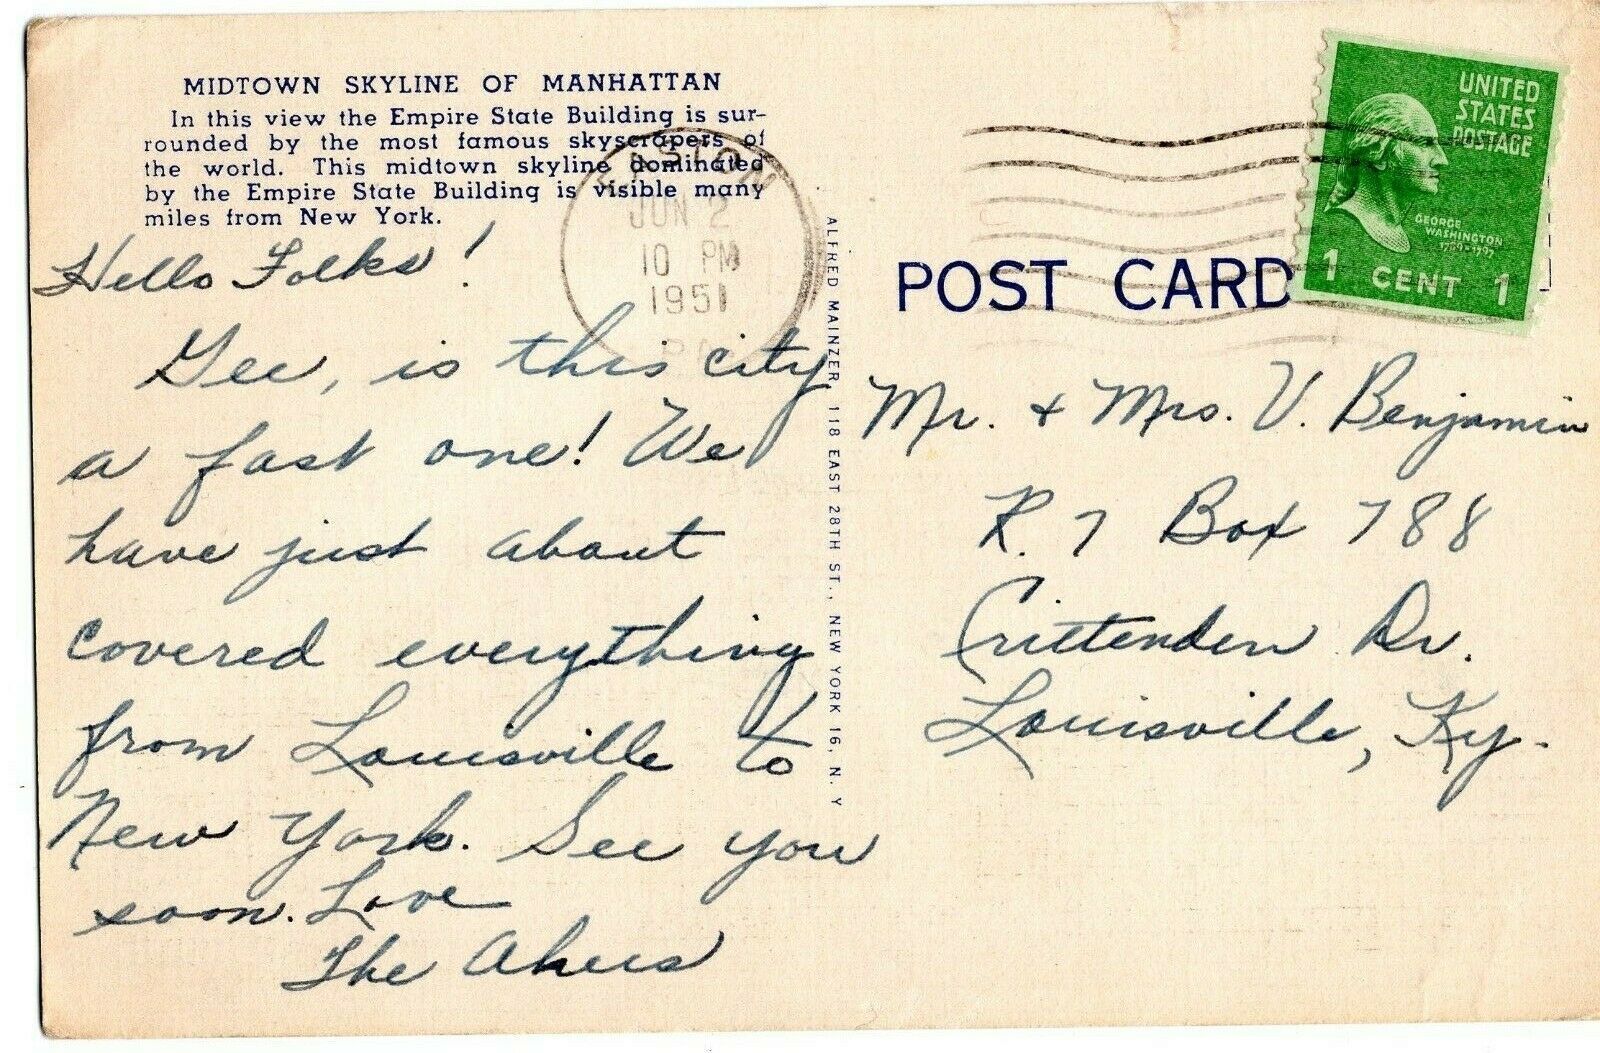 MIDTOWN SKYLINE OF MANHATTAN
In this view the Empire State Building is sur-
rounded by the most famous skyscrapers of
the world. This midtown skyline dominated
by the Empire State Building is visible many
miles from New York.
Hello Folks!
Gee, is this city
a fast one! We
have just about
covered everything
from Louisville to
New York. See you
soon. Love
The Akers
EASTON
JUN 2
10 PM
1951
PA
ALFRED MAINZER, 118 EAST 28TH ST., NEW YORK 16, N. Y
POST CARD
UNITED
STATES
POSTAGE
GEORGE
WASHINGTON
1789-1797
1 CENT 1
Mr. + Mrs. V. Benjamin
R. 7 Box 788
Crittenden Dr.
Louisville, Ky.